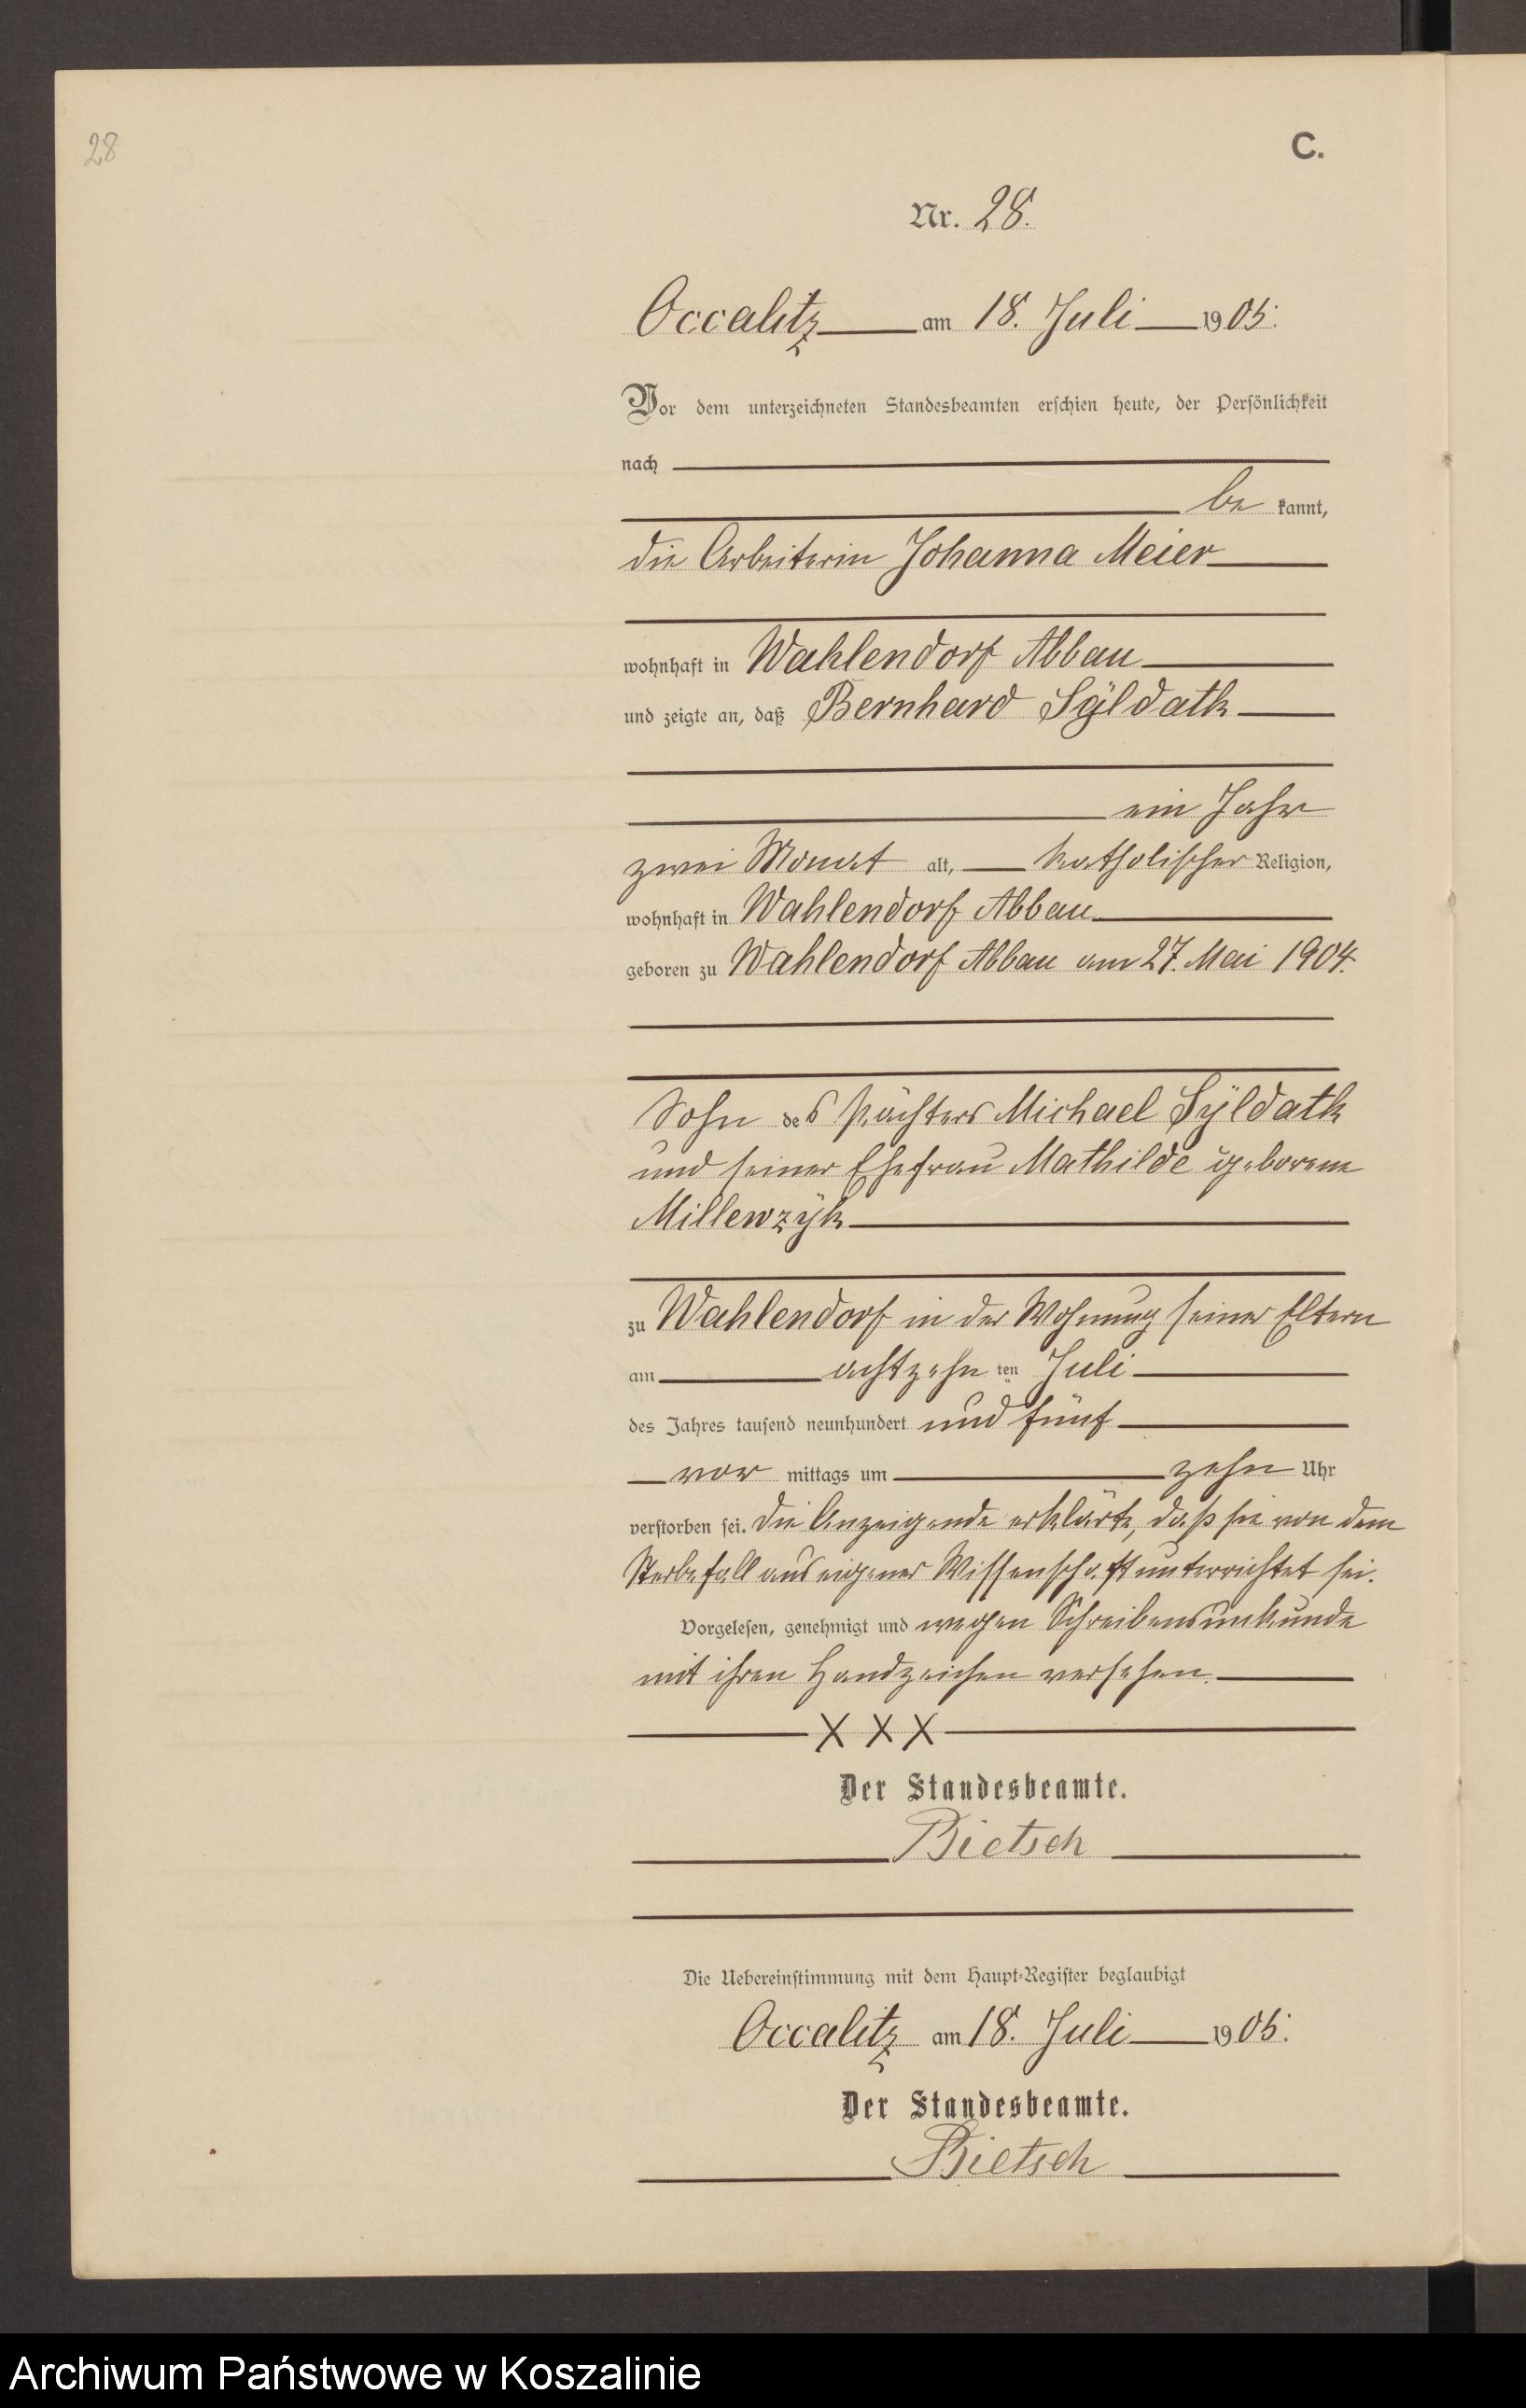 28
C.
Nr. 28.
Occalitz am 18. Juli 1905.
Vor dem unterzeichneten Standesbeamten erschien heute, der Persönlichkeit
nach
be kannt,
die Arbeiterin Johanna Meier
wohnhaft in Wahlendorf Abbau
und zeigte an, daß Bernhard Sÿldatk
ein Jahr
zwei Monat alt, katholischer Religion,
wohnhaft in Wahlendorf Abbau
geboren zu Wahlendorf Abbau am 27. Mai 1904.
Sohn des Pächters Michael Sÿldatk
und seiner Ehefrau Mathilde geborene
Millewzÿk
zu Wahlendorf in der Wohnung seiner Eltern
am achtzehn ten Juli
des Jahres tausend neunhundert und fünf
vor mittags um zehn Uhr
verstorben sei. Die Anzeigende erklärte, daß sie von dem
Sterbefall aus eigener Wissenschaft unterrichtet sei.
Vorgelesen, genehmigt und wegen Schreibensunkunde
mit ihren Handzeichen versehen.
X X X
Der Standesbeamte.
Bietsch
Die Uebereinstimmung mit dem Haupt-Register beglaubigt
Occalitz am 18. Juli 1905.
Der Standesbeamte.
Bietsch
Archiwum Państwowe w Koszalinie